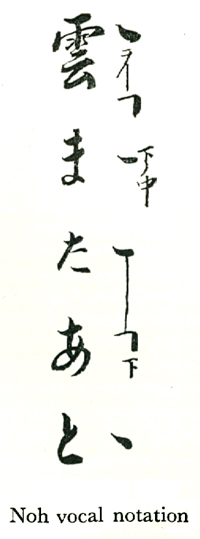 雲またあと
下中
下
Noh vocal notation